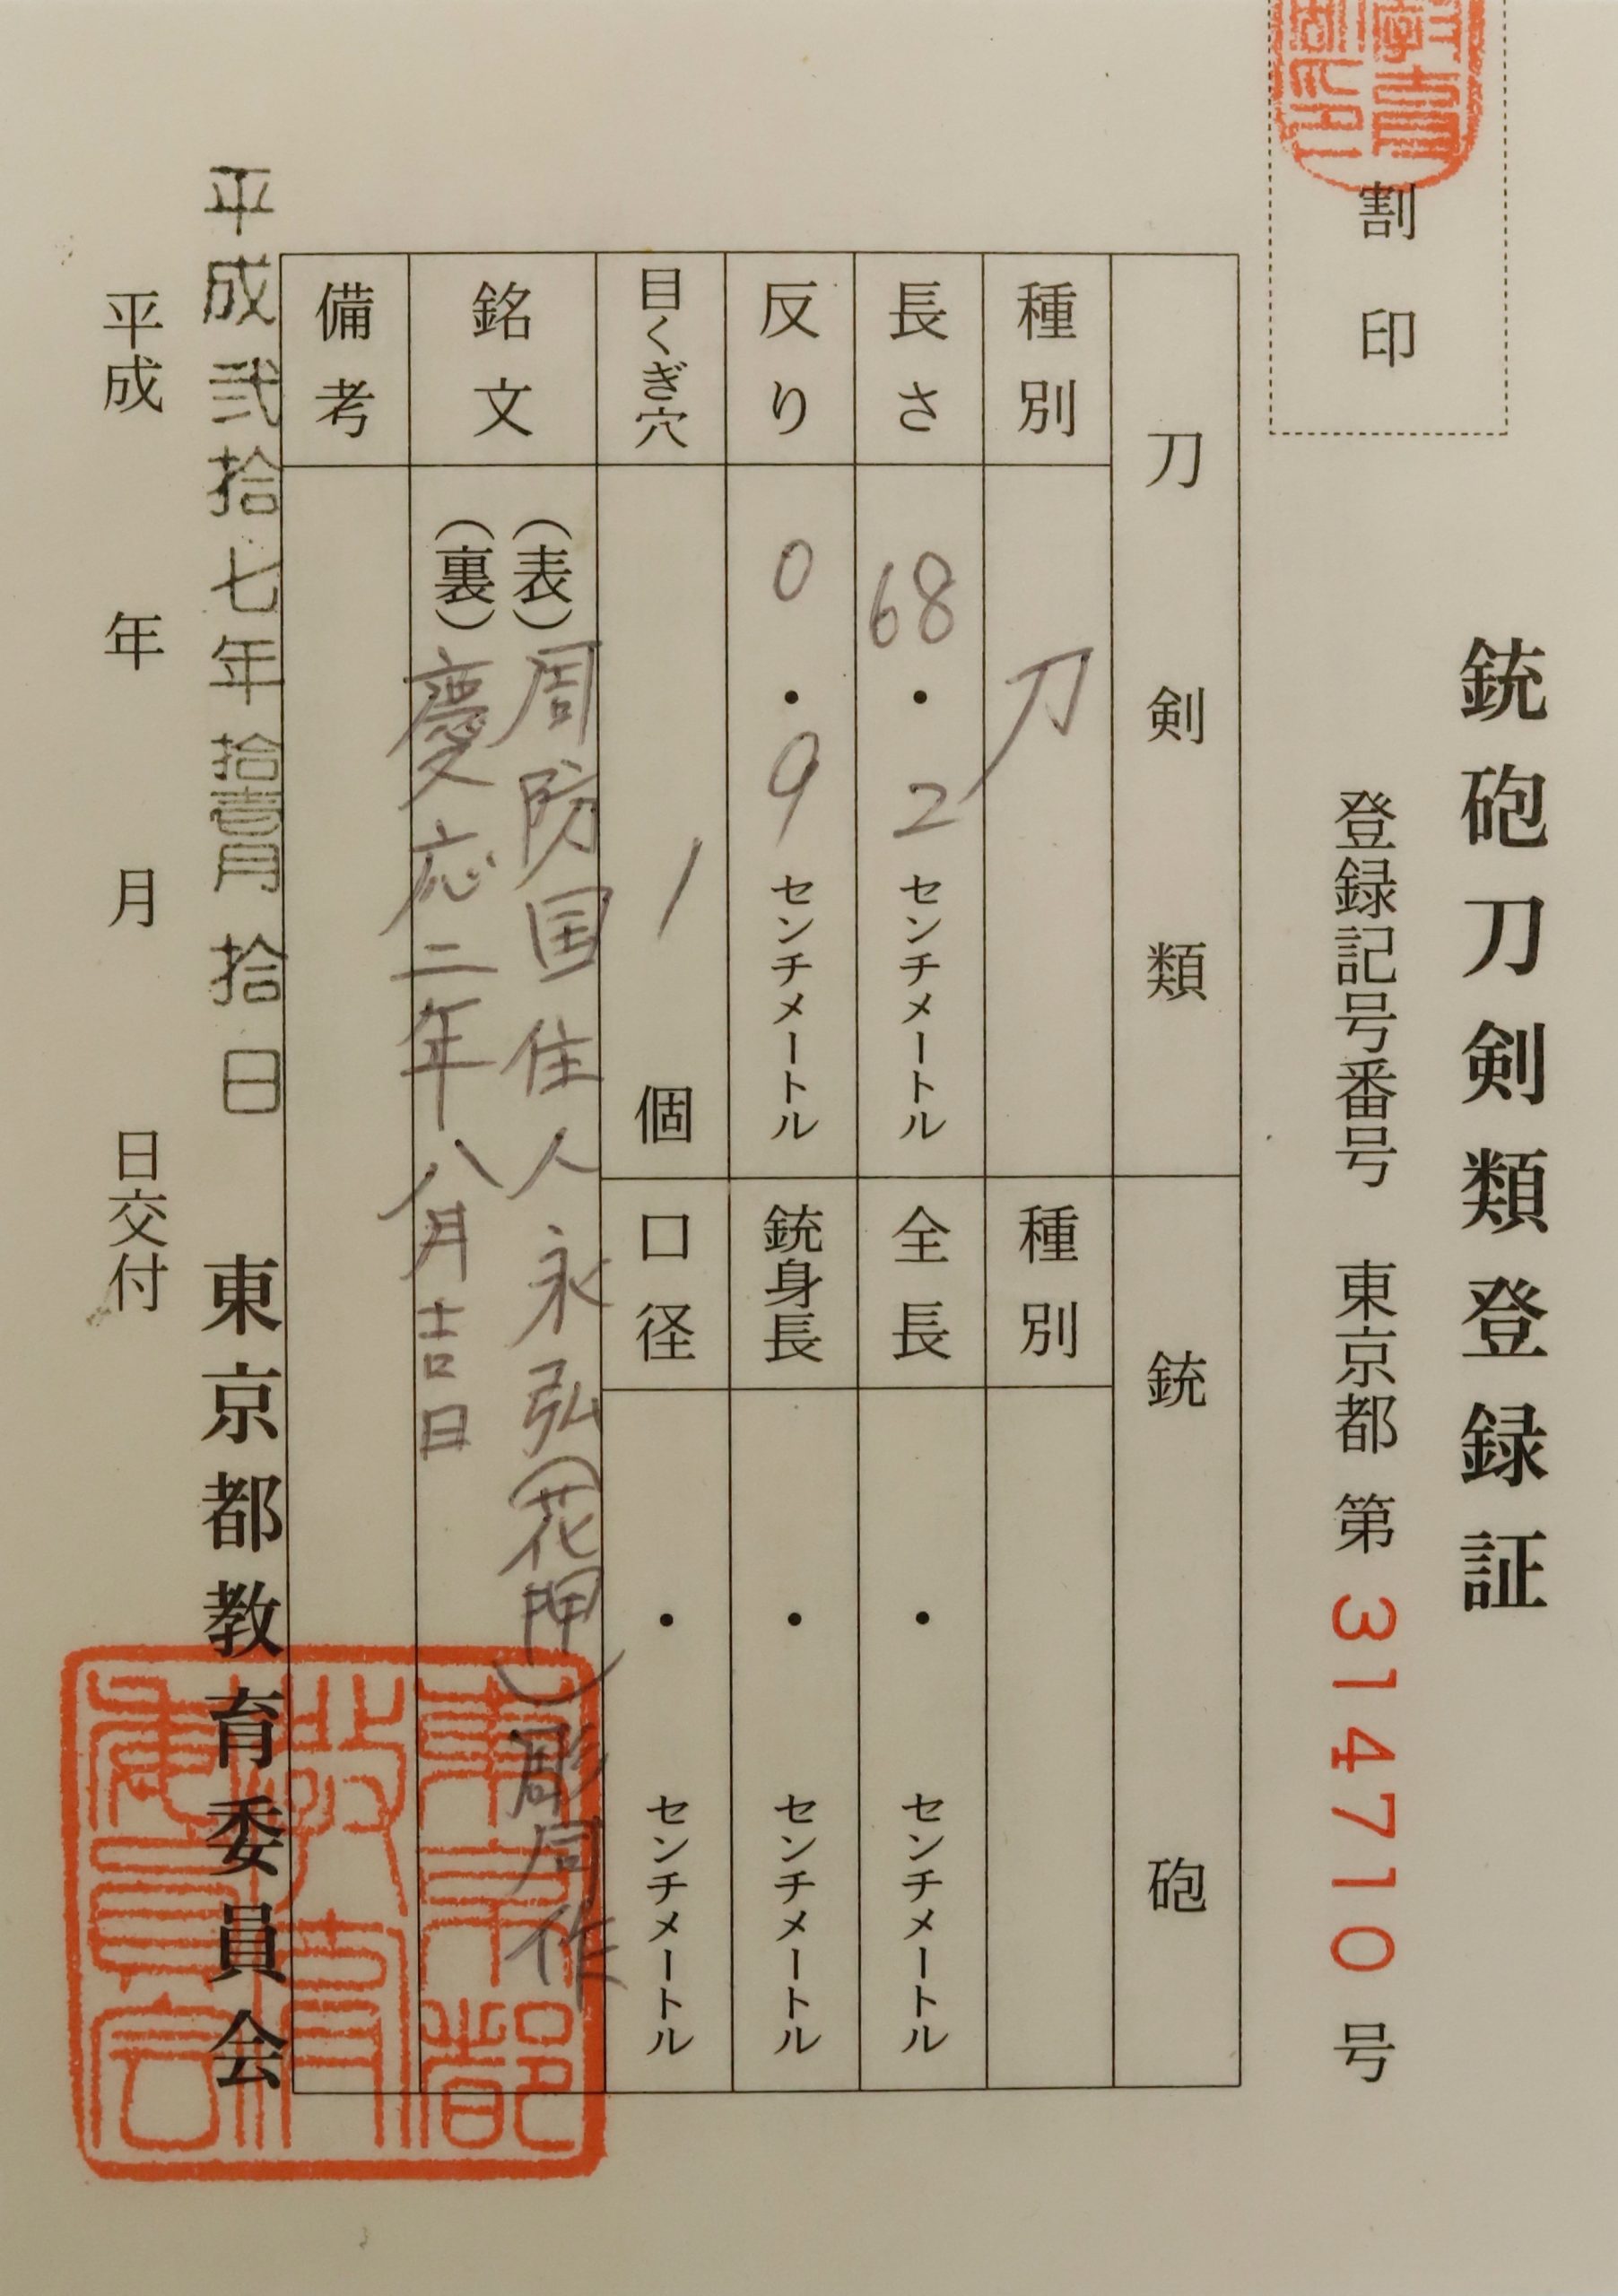 銃砲刀剣類登録証
割印
登録記号番号 東京都 第 314710 号
刀剣類
銃砲
種別 刀
種別
長さ 68・2 センチメートル
全長 ・ センチメートル
反り 0・9 センチメートル
銃身長 ・ センチメートル
目くぎ穴 1 個
口径 ・ センチメートル
銘文 (表)周防国住人永弘(花押)彫同作
(裏)慶応二年八月吉日
備考
平成弐拾七年拾壹月拾日 東京都教育委員会
平成 年 月 日交付
東京都教育委員会